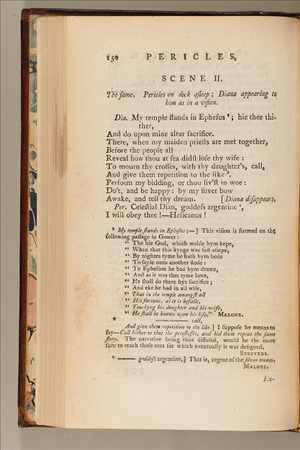 130 PERICLES,
SCENE II.
The same. Pericles on deck asleep; Diana appearing to
him as in a vision.
Dia. My temple stands in Ephesus; hie thee thi-
ther,
And do upon mine altar sacrifice.
There, when my maiden priests are met together,
Before the people all
Reveal how thou at sea didst lose thy wife:
To mourn thy crosses, with thy daughter's, call,
And give them repetition to the like.
Perform my bidding, or thou liv'st in woe:
Do't, and be happy: by my silver bow
Awake, and tell thy dream. [Diana disappears.
Per. Celestial Dian, goddess argentine,
I will obey thee!—Helicanus!
My temple stands in Ephesus;—] This vision is formed on the
following passage in Gower:
" The hie God, which wolde hym kepe,
" When that this kynge was fast aslepe,
" By nightes tyme he hath hym bede
" To sayle unto another stede:
" To Ephesum he bad hym drawe,
" And as it was that tyme lawe,
" He shall do there hys sacrifice;
" And eke he bad in all wise,
" That in the temple amongst all
" His fortune, as it is befalle,
" Touchyng his daughter and his wife,
" He shall be knowe upon his life." MALONE.
———— call,
And give them repetition to the like.] I suppose he means to
say—Call hither to thee the priestesses, and bid them repeat the same
story. The narrative being thus diffused, would be the more
sure to reach those ears for which eventually it was designed.
STEEVENS.
——— goddess argentine,] That is, regent of the silver moon,
MALONE.
Ex-